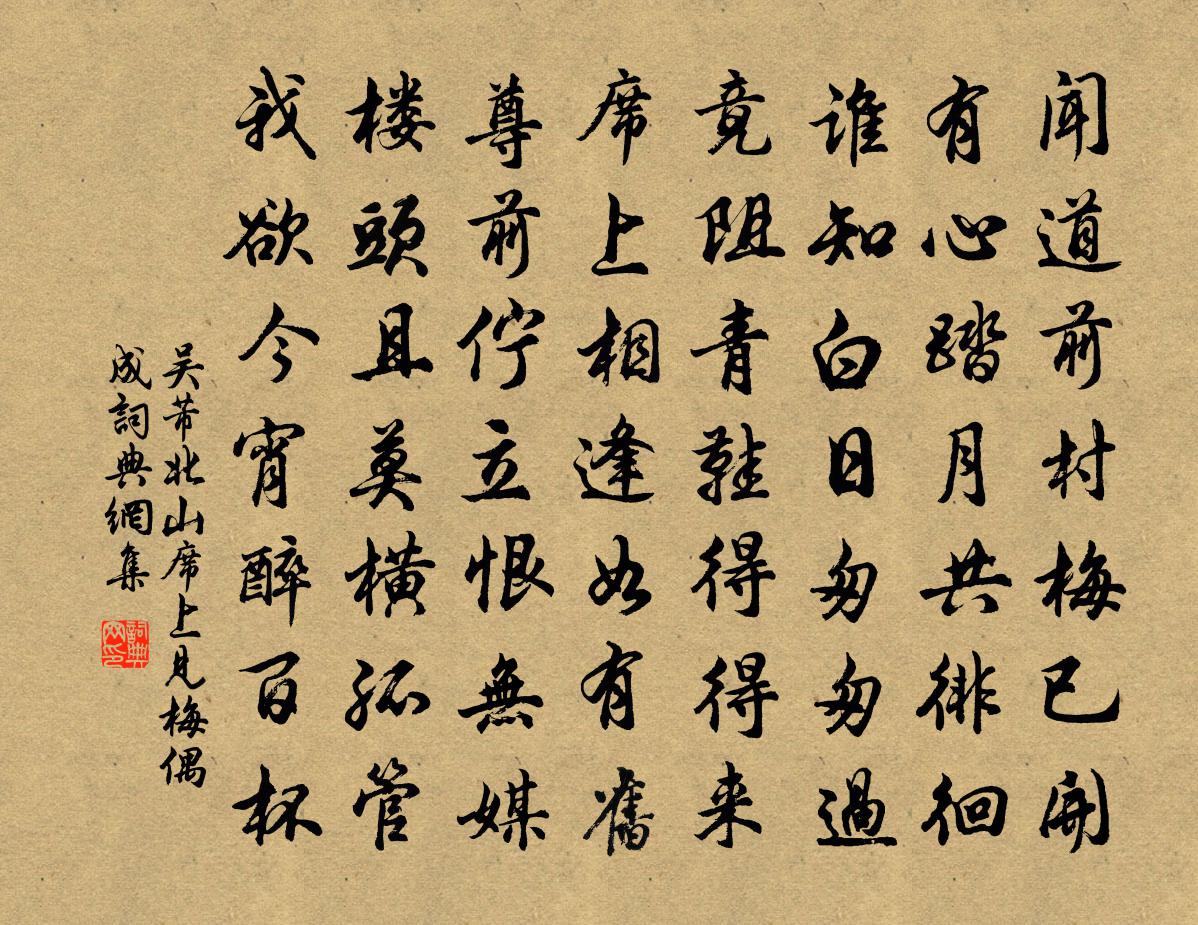 闻道前村梅已開
有心踏月共徘徊
谁知白日匆匆過
竟阻青鞋得得来
席上相逢如有舊
尊前佇立恨無媒
楼頭且莫横孤管
我欲今宵醉百杯
吴芾北山席上見梅偶
成詞典網集
詞典
网印